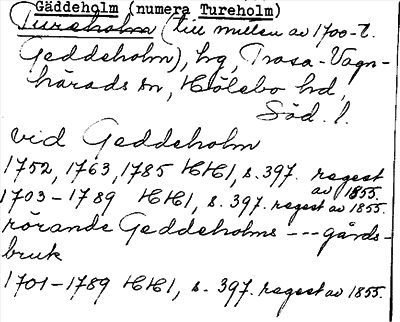 Gäddeholm (numera Tureholm)
Tureholm (till mitten av 1700-t.
Geddeholm), hg, Trosa-Vagn-
härads sn, Hölebo hd,
Söd. l.
vid Geddeholm
1752, 1763, 1785 HH1, s. 397. regest
av 1855.
1703-1789 HH1, s. 397. regest av 1855.
rörande Geddeholms --- gårds-
bruk
1701-1789 HH1, s. 397. regest av 1855.